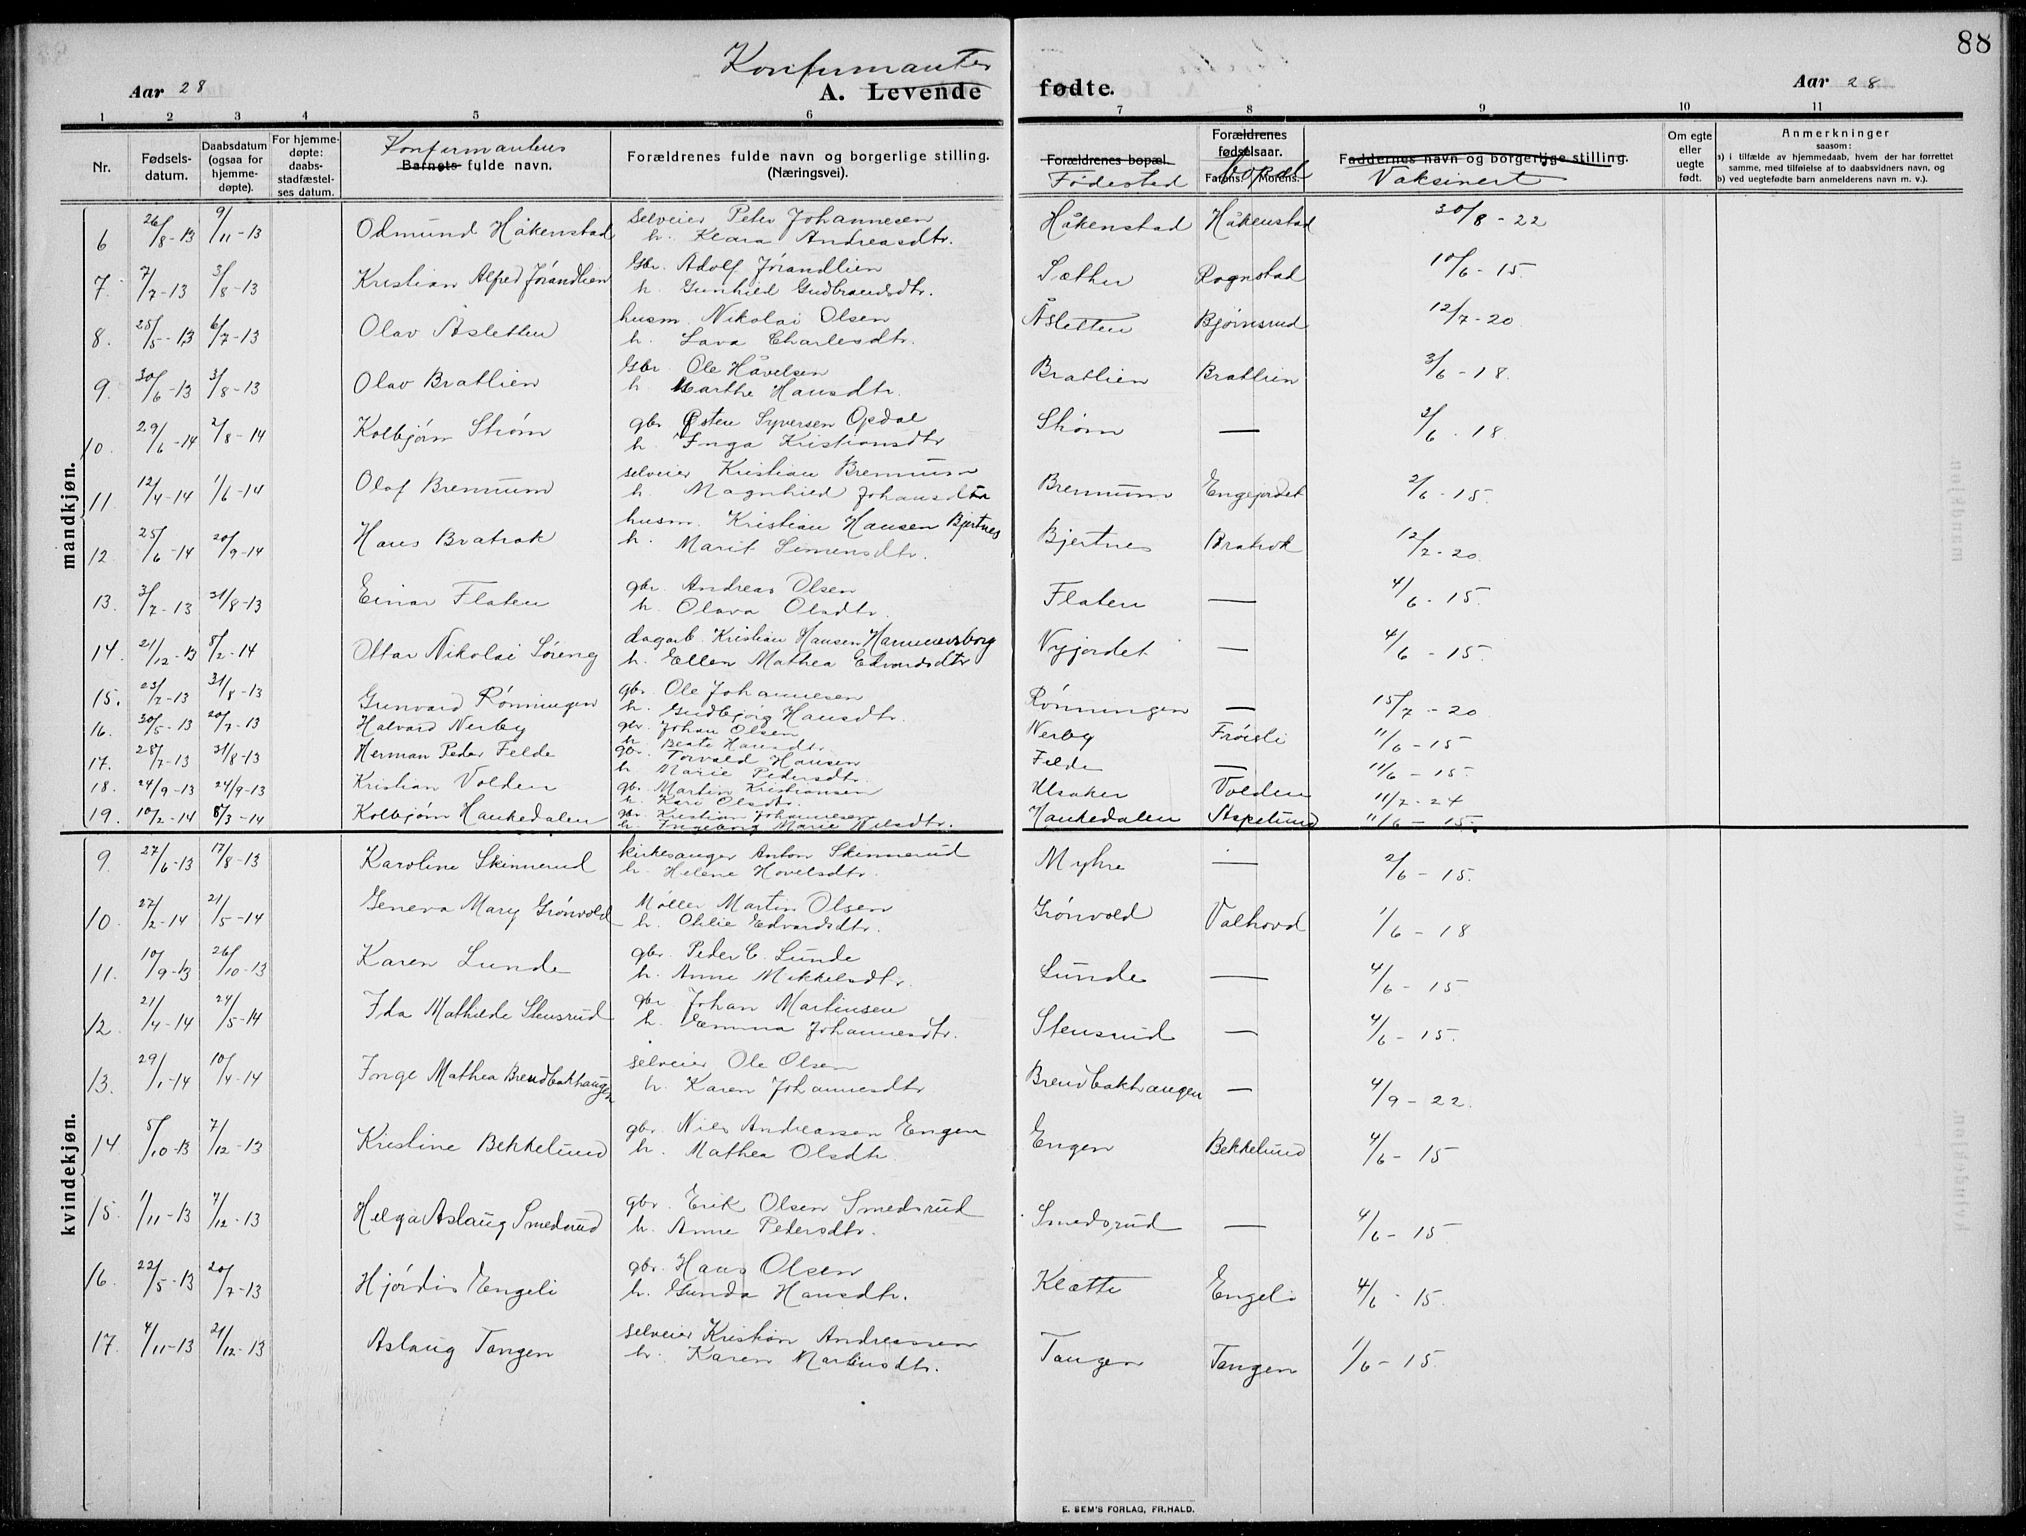 88
Konfirmanter
Aar 28 A. Levende fødte. Aar 28
1 2 3 4 5 6 7 8 9 10 11
Nr. Fødsels-datum. Daabsdatum (ogsaa for hjemme-døpte). For hjemme-døpte: daabs-stadfæstel-ses datum. Konfirmantens Barnets fulde navn. Forældrenes fulde navn og borgerlige stilling. (Næringsvei). Forældrenes bopæl. Fødested Forældrenes fødselsaar. Farens. Morens. Bopæl Faddernes navn og borgerlige stilling. Vaksinert Om egte eller uegte født. Anmerkninger saasom: a) i tilfælde av hjemmedaab, hvem der har forrettet samme, med tilføielse af to daabsvidners navn, og b) ved uegtefødte barn anmelderens navn m. v.).
mandkjøn.
6 26/8-13 9/11-13 Odmund Håkenstad selveier Peter Johannesen Håkenstad Håkenstad 30/8-22
h. Klara Andreasdtr.
7. 7/7-13 3/8-13 Kristian Alfred Jørandlien Gbr. Adolf Jørandlien Sæther Rognstad 10/6-15
h. Gunhild Gudbrandsdtr.
8. 25/5-13 6/7-13 Olav Åsletten husm. Nikolai Olsen Åsletten Bjørnsrud 12/7-20
h. Lava Charlesdtr.
9. 30/6-13 3/8-13 Olav Bratlien Gbr Ole Håvelsen Bratlien Bratlien 3/6-18.
h. Marthe Hansdtr.
10. 29/6-14 2/8-14 Kolbjørn Strøm gbr Østen Syversen Opdal Strøm — 3/6-18.
h. Inga Kristiansdtr
11. 12/4-14 1/6-14 Olaf Brennum selveier Kristian Brennum Brennum Engejordet 2/6-15.
h. Magnhild Johansdtr
12. 25/6-14 20/9-14 Hans Bratrok husm. Kristian Hansen Bjertnes Bjertnes Bratrok 12/2-20
h. Marit Simensdtr.
13. 3/7-13 31/8-13 Einar Flaten gbr Andreas Olsen Flaten — 4/6-15.
h. Olava Olsdtr.
14. 21/12-13 8/2-14 Ottar Nikolai Søreng dagarb. Kristian Hansen Hammersborg Nyjordet — 4/6-15.
h. Ellen Mathea Edvardsdtr
15. 23/7-13 31/8-13 Gunvard Rønningen gbr. Ole Johannesen Rønningen — 15/7-20
h. Gudbjørg Hansdtr.
16. 30/5-13 20/7-13 Halvard Nerby gbr. Johan Olsen Nerby Frøisli 11/6-15
h. Beate Hansdtr.
17. 28/7-13 31/8-13 Herman Peder Felde gbr. Torvald Hansen Felde — 11/6-15.
h. Marie Pedersdtr.
18. 24/9-13 24/9-13 Kristian Volden gb. Martin Kristiansen Ulsaker Volden 11/2-24
h. Kari Olsdtr.
19. 10/2-14 8/3-14 Kolbjørn Haukedalen gbr. Kristian Johannesen Haukedalen Aspelund 11/6-15.
h. Ingeborg Marie Nilsdtr.
kvindekjøn.
9. 27/6-13 17/8-13 Karoline Skinnerud kirkesanger Anton Skinnerud Myhre — 2/6-15.
h. Helene Hovelsdtr.
10. 27/2-14 21/5-14 Geneva Mary Grønvold Møller Martin Olsen Grønvold Valhovd 1/6-18
h. Othilie Edvardsdtr.
11. 10/9-13 26/10-13 Karen Lunde gbr. Peder C. Lunde Lunde — 4/6-15.
h. Anne Mikkelsdtr.
12. 21/4-14 24/5-14 Ida Mathilde Stensrud gbr Johan Martinsen Stensrud — 4/6-15.
h. Emma Johannesdtr.
13. 29/1-14 10/4-14 Inge Mathea Brendbakhaugen selveier Ole Olsen Brendbakhaugen — 4/9-22.
h. Karen Johannesdtr
14 5/10-13 7/12-13 Kristine Bekkelund gbr. Nils Andreassen Engen Engen Bekkelund 4/6-15
h. Mathea Olsdtr.
15. 1/11-13 7/12-13 Helga Aslaug Smedsrud gbr. Erik Olsen Smedsrud Smedsrud — 4/6-15
h. Anne Pedersdtr.
16. 22/5-13 20/7-13 Hjørdis Engeli gbr. Hans Olsen Klætte Engeli 4/6-15.
h. Gunda Hansdtr.
17. 4/11-13 21/12-13 Aslaug Tangen selveier Kristian Andreassen Tangen Tangen 1/6-15.
h. Karen Martinsdtr.
E. SEM'S FORLAG, FR.HALD.